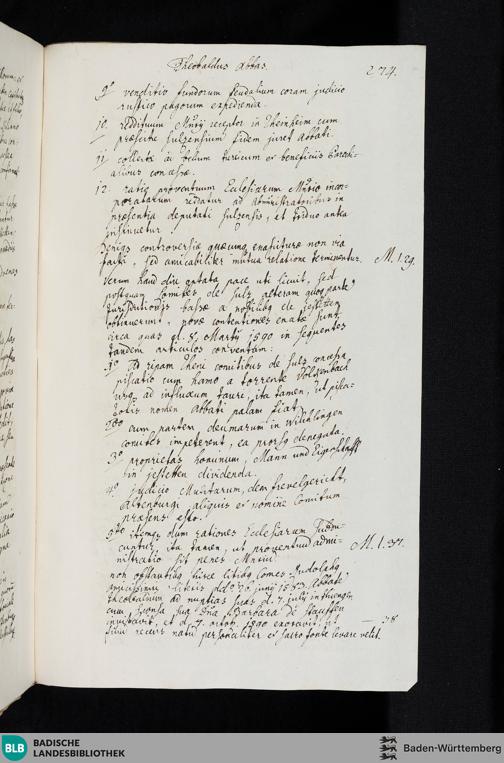 Theobaldus Abbas.
274.
9° venditio fundorum feudalium coram judicio
rustico pagorum expedienda.
10. reddituum receptor in Rheinheim cum
praescitu Sulzensium fidem juret Abbati.
11 collecta ad bellum turicum ex beneficiis Paroch-
12. ratio proventuum Ecclesiarum incor-
poratarum reddatur ad Administratoribus in
praesentia deputati Sulzensis, et triduo antea
insinuetur.
Denique controversiae quaecunque enasciturae non via
facti, sed amicabiliter mutua relatione terminentur.
M. 1. 29.
Verum haud diu optata pace uti licuit, sed
postquam Comites de Sulz alteram quoque partem
Jurisdictionis bassae a nobilibus de Jestetten
obtinuerunt, novae contentiones enatae sunt,
circa quas d. 8. Martij 1590 in sequentes
tandem articulos conventum:
1° ad ripam Rheni comitibus de Sulz
piscatio cum hamo a torrente Volckenbach
usque ad influxum ita tamen, ut pisca-
toris nomen Abbati palam fiat.
cum partem decimarum in
comites impeterent, ea prorsus denegata.
3° proprietas hominum, Mann und Eigenschafft
in Jestetten dividenda.
4° judicio Multarum, dem frevelgericht,
Altenburgi aliquis ex nomine Comitum
praesens esto.
5to itemque dum rationes Ecclesiarum
ita tamen, ut proventuum admi-
nistratio sit penes
M. 1. 37.
non obstantibus hisce litibus Comes Rudolphus
amicissimis literis dd° 30. junij 1583. Abbatem
Theobaldum ad nuptias suas d. 7. julij in
cum sponsa sua Dna Barbara de Stauffen
invitavit, et d. 7. octob. 1590 exoravit, ut
suum recens natum personaliter ex sacro fonte levare velit.
38
BLB
BADISCHE
LANDESBIBLIOTHEK
Baden-Württemberg